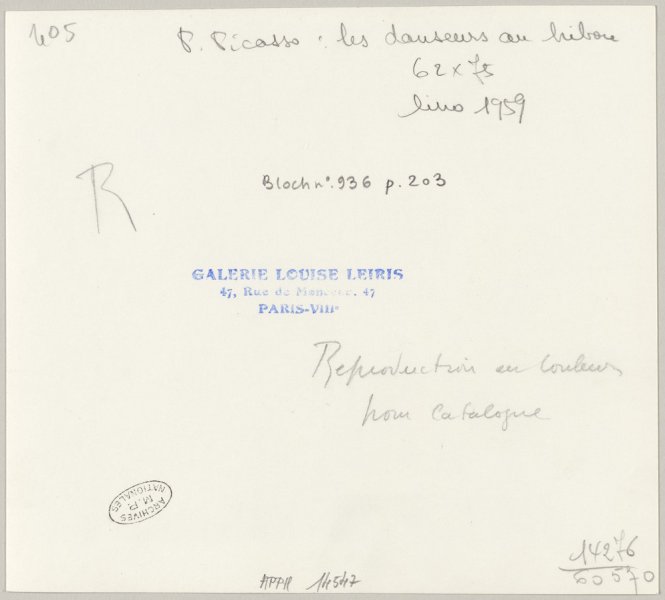 405
P. Picasso : les danseurs au hibou
62 x 75
lino 1959
R
Bloch n°. 936 p. 203
GALERIE LOUISE LEIRIS
47, Rue de Monceau. 47
PARIS-VIIIe
Reproduction en couleurs
pour catalogue
ARCHIVES
M.P.
NATIONALES
APPH 14547
14276
60570